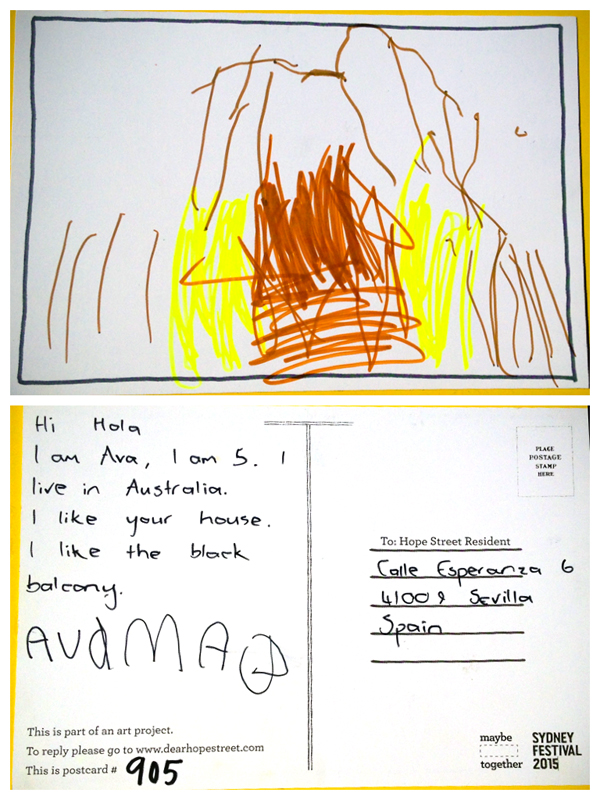 Hi Hola
I am Ava, I am 5. I
live in Australia.
I like your house.
I like the black
balcony.
AvaMA
This is part of an art project.
To reply please go to www.dearhopestreet.com
This is postcard # 905
PLACE
POSTAGE
STAMP
HERE.
To: Hope Street Resident
Calle Esperanza 6
41002 Sevilla
Spain
maybe
together
SYDNEY
FESTIVAL
2015